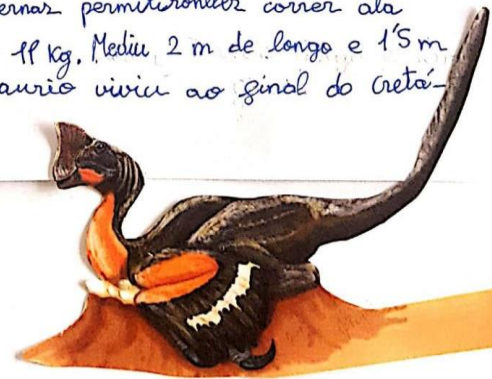 ernas permitíronlles correr ata
11 kg. Mediu 2 m de longo e 1'5 m
aurio viviu ao final do Cretá-